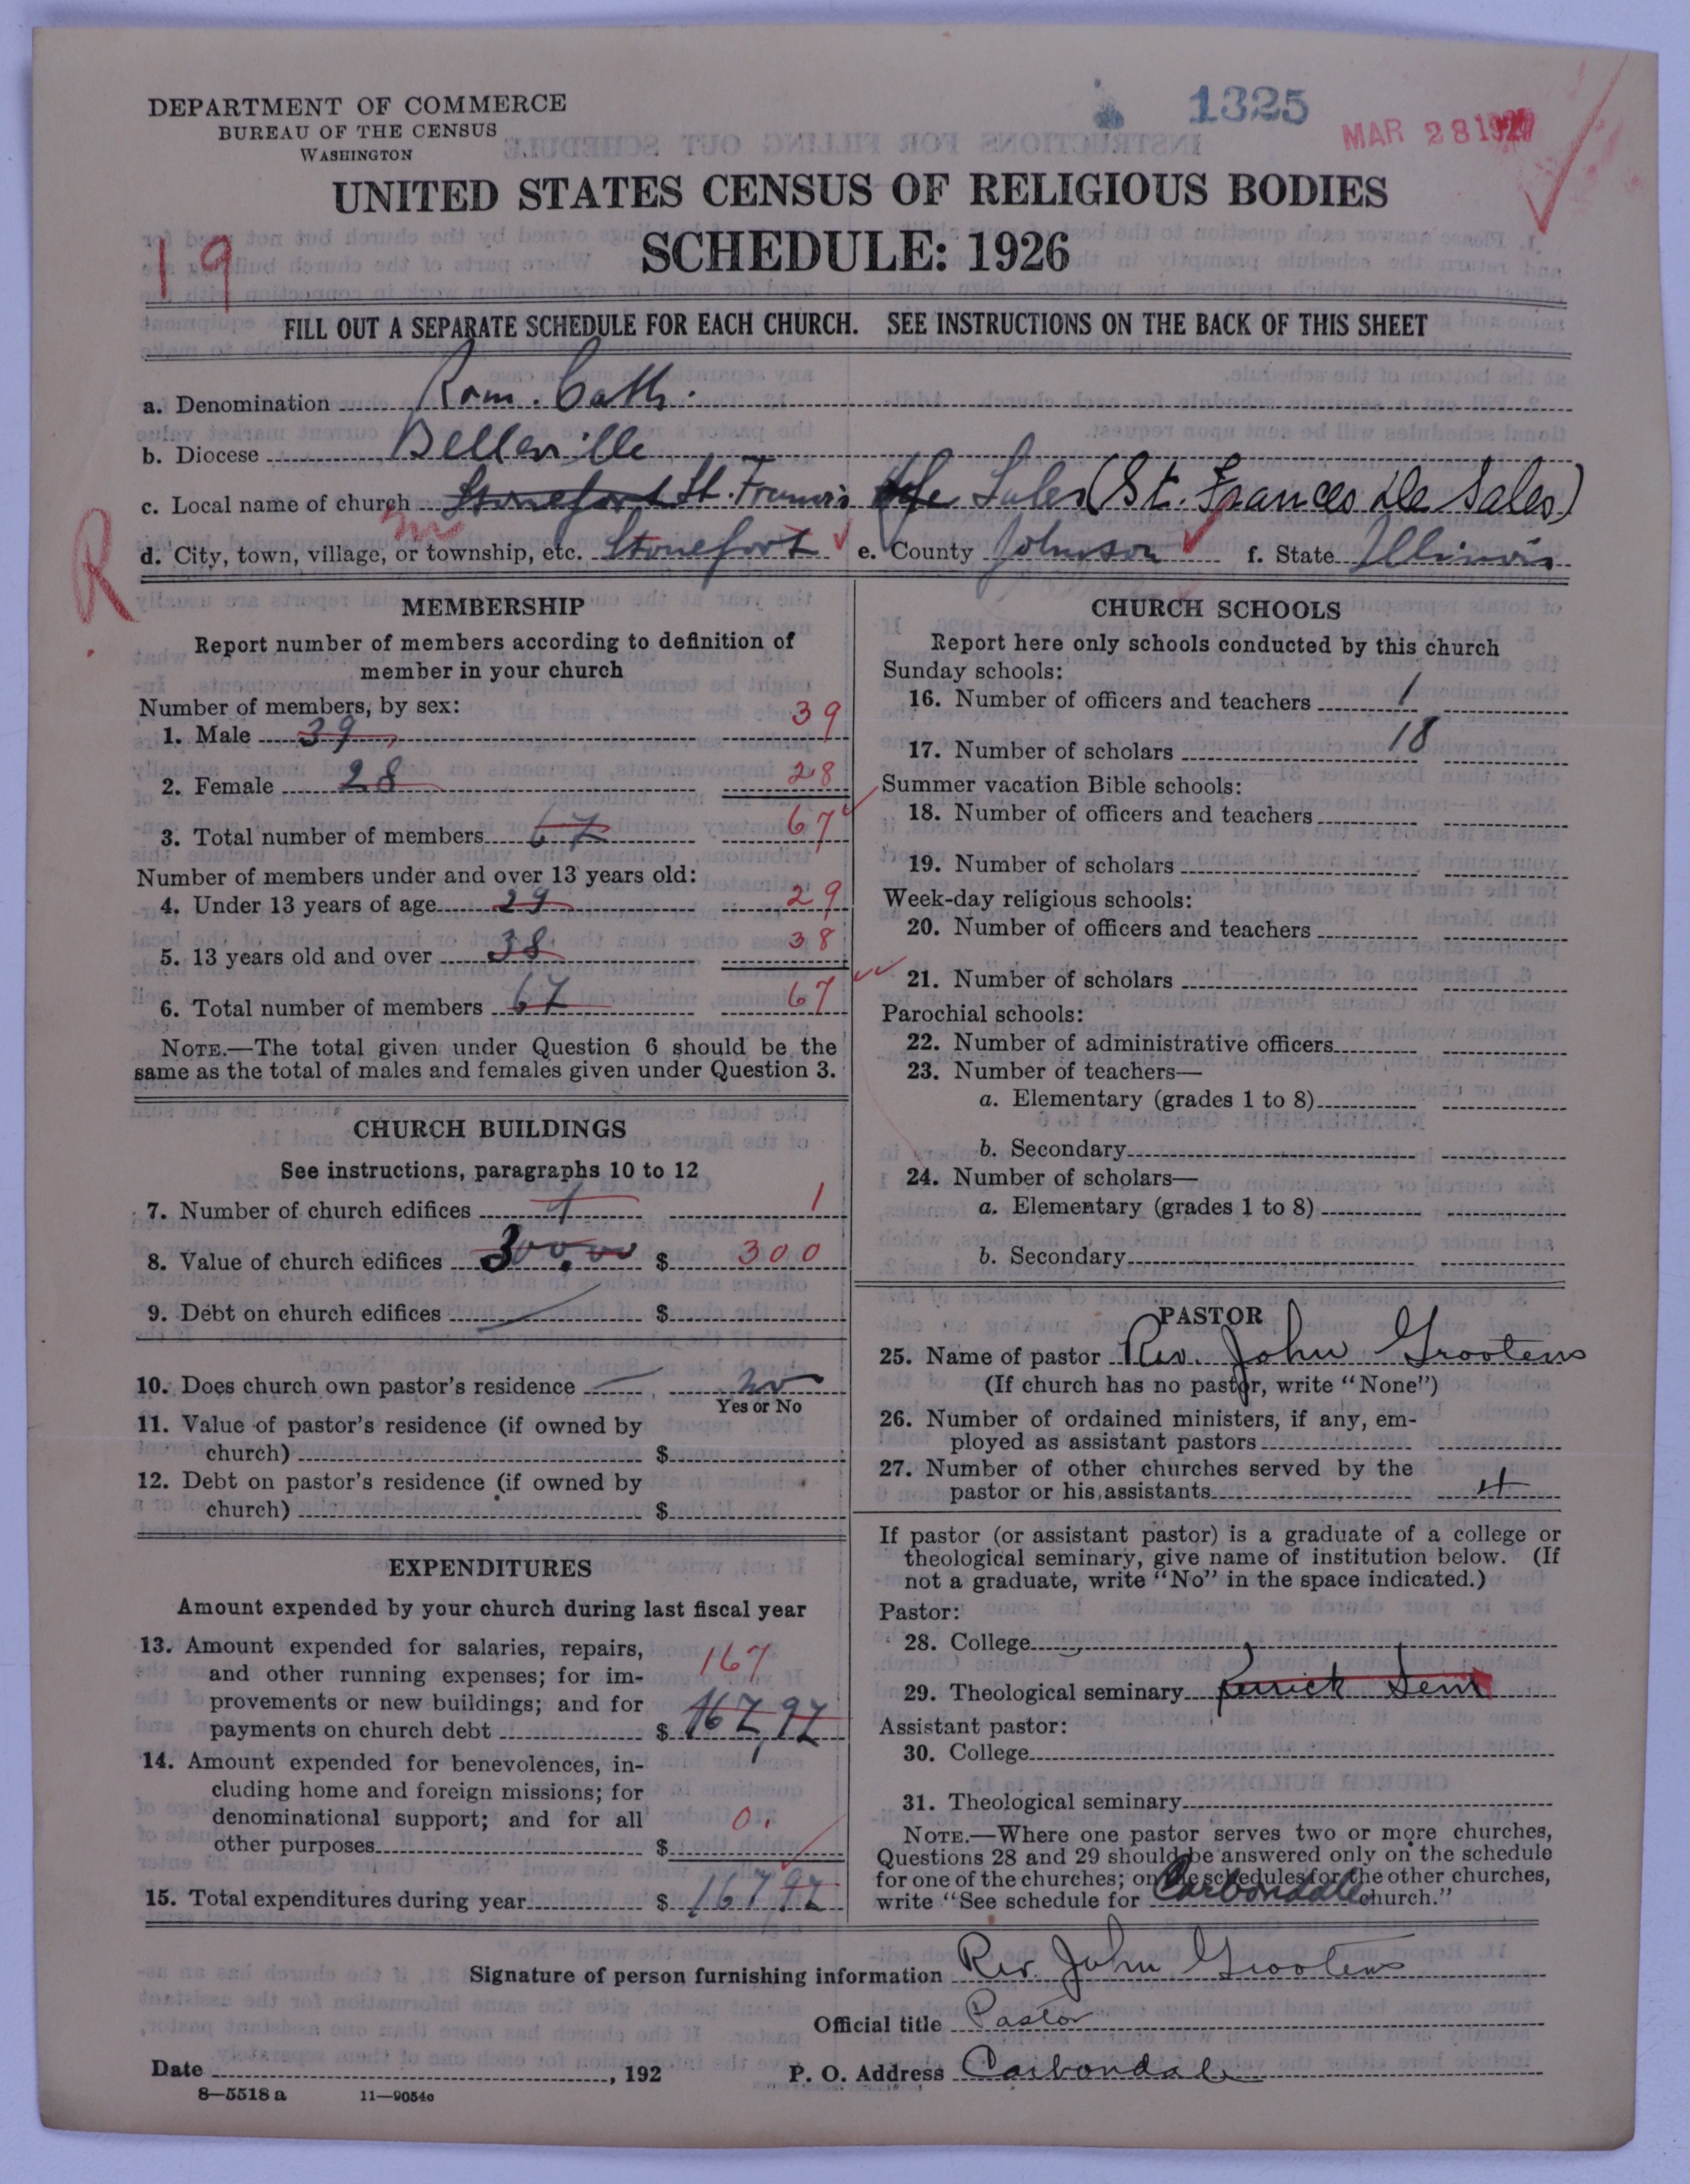 DEPARTMENT OF COMMERCE
BUREAU OF THE CENSUS
WASHINGTON
1325
MAR 28 1927
UNITED STATES CENSUS OF RELIGIOUS BODIES
SCHEDULE: 1926
19
FILL OUT A SEPARATE SCHEDULE FOR EACH CHURCH. SEE INSTRUCTIONS ON THE BACK OF THIS SHEET
a. Denomination Rom. Cath.
b. Diocese Belleville
c. Local name of church Stonefort St. Francis de Sales (St. Frances De Sales)
d. City, town, village, or township, etc. Stonefort e. County Johnson f. State Illinois
R
MEMBERSHIP
Report number of members according to definition of
member in your church
Number of members, by sex:
1. Male 39 39
2. Female 28 28
3. Total number of members 67 67
Number of members under and over 13 years old:
4. Under 13 years of age 29 29
5. 13 years old and over 38 38
6. Total number of members 67 67
NOTE.—The total given under Question 6 should be the
same as the total of males and females given under Question 3.
CHURCH BUILDINGS
See instructions, paragraphs 10 to 12
7. Number of church edifices 1 1
8. Value of church edifices 300.00 $ 300
9. Debt on church edifices $
10. Does church own pastor's residence no
Yes or No
11. Value of pastor's residence (if owned by
church) $
12. Debt on pastor's residence (if owned by
church) $
EXPENDITURES
Amount expended by your church during last fiscal year
13. Amount expended for salaries, repairs,
and other running expenses; for im-
provements or new buildings; and for
payments on church debt $ 167.97
167
14. Amount expended for benevolences, in-
cluding home and foreign missions; for
denominational support; and for all
other purposes $ 0.
15. Total expenditures during year $ 167 97
CHURCH SCHOOLS
Report here only schools conducted by this church
Sunday schools:
16. Number of officers and teachers 1
17. Number of scholars 18
Summer vacation Bible schools:
18. Number of officers and teachers
19. Number of scholars
Week-day religious schools:
20. Number of officers and teachers
21. Number of scholars
Parochial schools:
22. Number of administrative officers
23. Number of teachers—
a. Elementary (grades 1 to 8)
b. Secondary
24. Number of scholars—
a. Elementary (grades 1 to 8)
b. Secondary
PASTOR
25. Name of pastor Rev. John Grootens
(If church has no pastor, write "None")
26. Number of ordained ministers, if any, em-
ployed as assistant pastors
27. Number of other churches served by the
pastor or his assistants 4
If pastor (or assistant pastor) is a graduate of a college or
theological seminary, give name of institution below. (If
not a graduate, write "No" in the space indicated.)
Pastor:
28. College
29. Theological seminary Kenrick Sem
Assistant pastor:
30. College
31. Theological seminary
NOTE.—Where one pastor serves two or more churches,
Questions 28 and 29 should be answered only on the schedule
for one of the churches; on the schedules for the other churches,
write "See schedule for Carbondale church."
Signature of person furnishing information Rev. John Grootens
Official title Pastor
Date , 192 P. O. Address Carbondale
8—5518 a 11—9054c